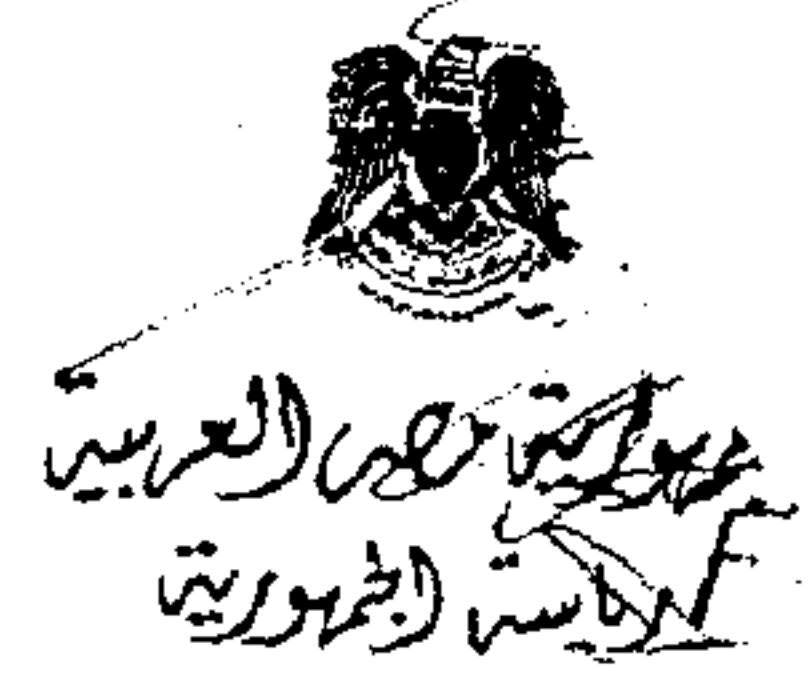 جمهورية مصر العربية
رئاسة الجمهورية